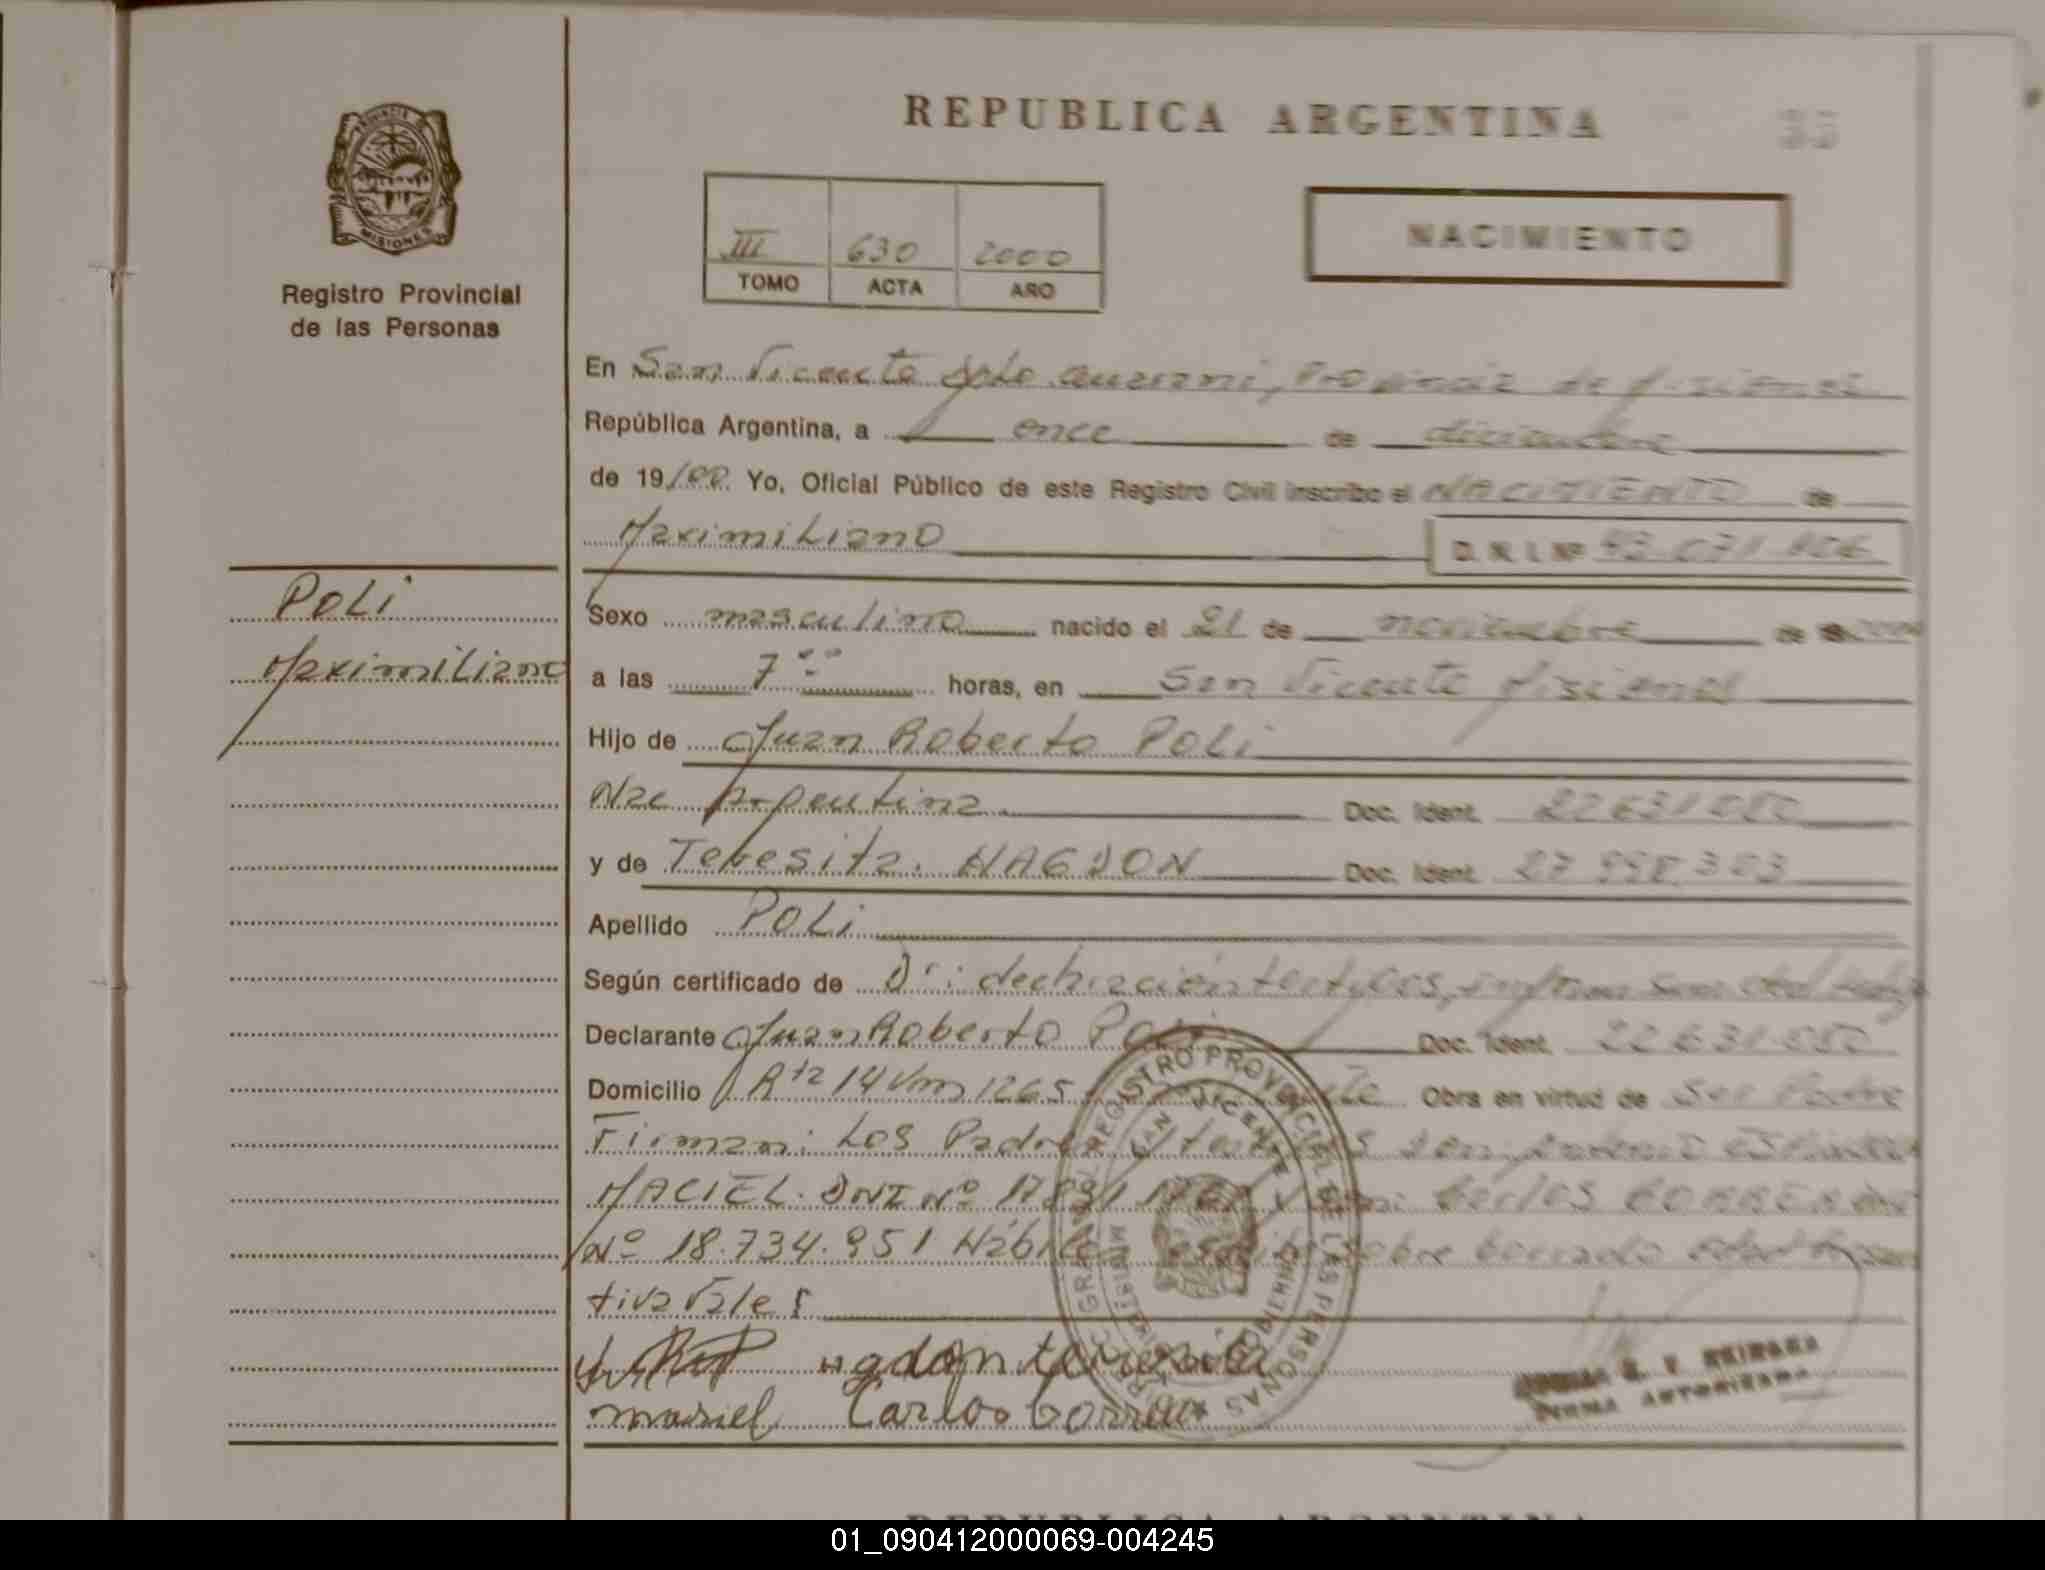 REPUBLICA ARGENTINA
35
PROVINCIA DE
MISIONES
Registro Provincial
de las Personas
III 630 2000
TOMO ACTA AÑO
NACIMIENTO
En San Vicente Dpto Guarani, Provincia de Misiones
República Argentina, a once de diciembre
de 19/00 Yo, Oficial Público de este Registro Civil inscribo el NACIMIENTO de
Maximiliano
D. N. I. Nº
POLI
Maximiliano
Sexo masculino nacido el 21 de noviembre de 2000
a las 7 horas, en San Vicente Misiones
Hijo de Juan Roberto POLI
Nac Argentina Doc. Ident. 22631050
y de Teresita. HAGDON Doc. Ident. 27.998.303
Apellido POLI
Según certificado de declaración testigos,
Declarante Juan Roberto Poli Doc. Ident. 22631050
Domicilio Rta 14 Km 1265 Obra en virtud de Ser Padre
Firman: Los Padres
MACIEL. DNI Nº Carlos CORREA
Nº 18.734.951 Hábiles sobre borrado
tiva Vale
Carlos Correa
REGISTRO PROVINCIAL DE LAS PERSONAS
SAN VICENTE
REPUBLICA ARGENTINA
01_090412000069-004245